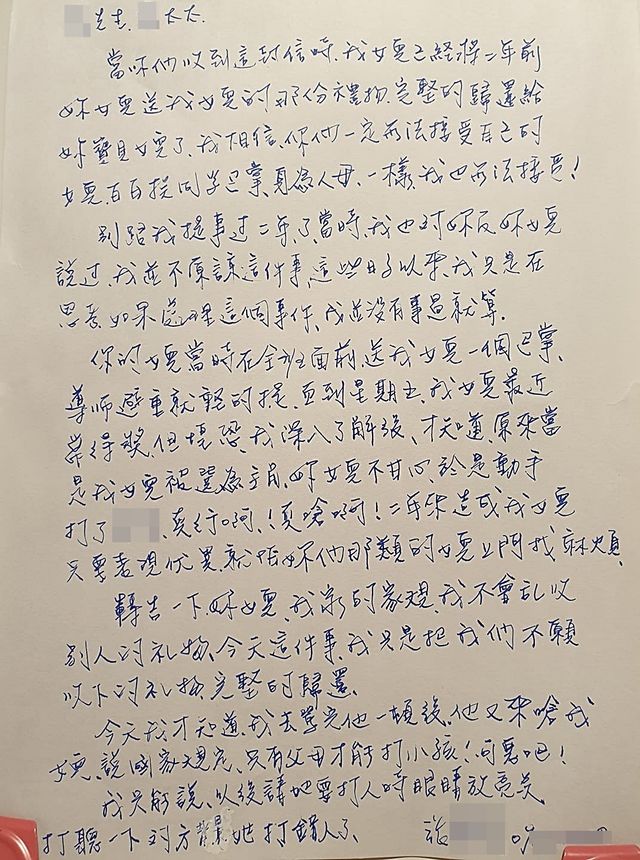 先生、太太.
當你們收到這封信時.我女兒已經將二年前
妳女兒送我女兒的那份禮物.完整的歸還給
妳寶貝女兒了.我相信.你們一定無法接受自己的
女兒.百百挨同學巴掌.身為人母.一樣.我也無法接受!
別跟我提事过二年了.當時.我也对妳及妳女兒
説过.我並不原諒這件事.這些日子以來.我只是在
思考如果處理這個事件.我並沒有事過就算.
你的女兒當時在全班面前.送我女兒一個巴掌.
導師避重就輕的提.直到星期五.我女兒最近
常得獎.但惶恐.我深入了解後.才知道.原來當
是我女兒被選為.妳女兒不甘心.於是動手
打了.真行啊.!真嗆啊!二年來造成我女兒
只要表現优異.就怕妳們那類的女兒上門找麻煩.
轉告一下.妳女兒.我家的家規.我不會乱收
別人的礼物.今天這件事.我只是把我們不願
收下的礼物.完整的歸還.
今天我才知道.我去掌完他一頓後.他又來嗆我
女兒.說國家規定.只有父母才能打小孩!可惡吧!
我只能說.以後請她要打人時眼睛放亮美
打聽一下对方.她打錯人了.